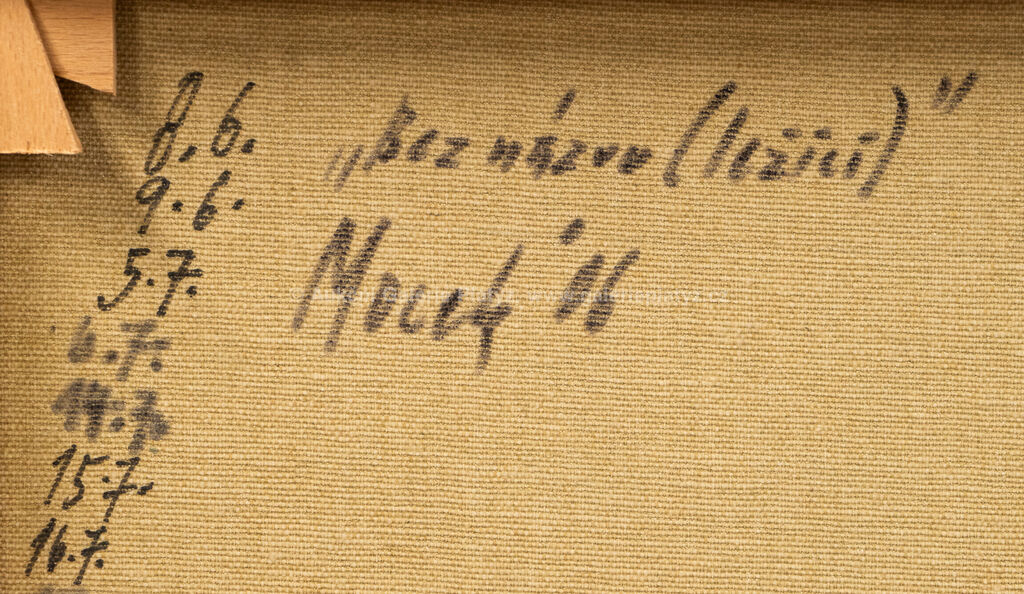 8.6.
9.6.
5.7.
6.7.
14.7.
15.7.
16.7.
„Bez názvu (ležící)"
Mocek '06